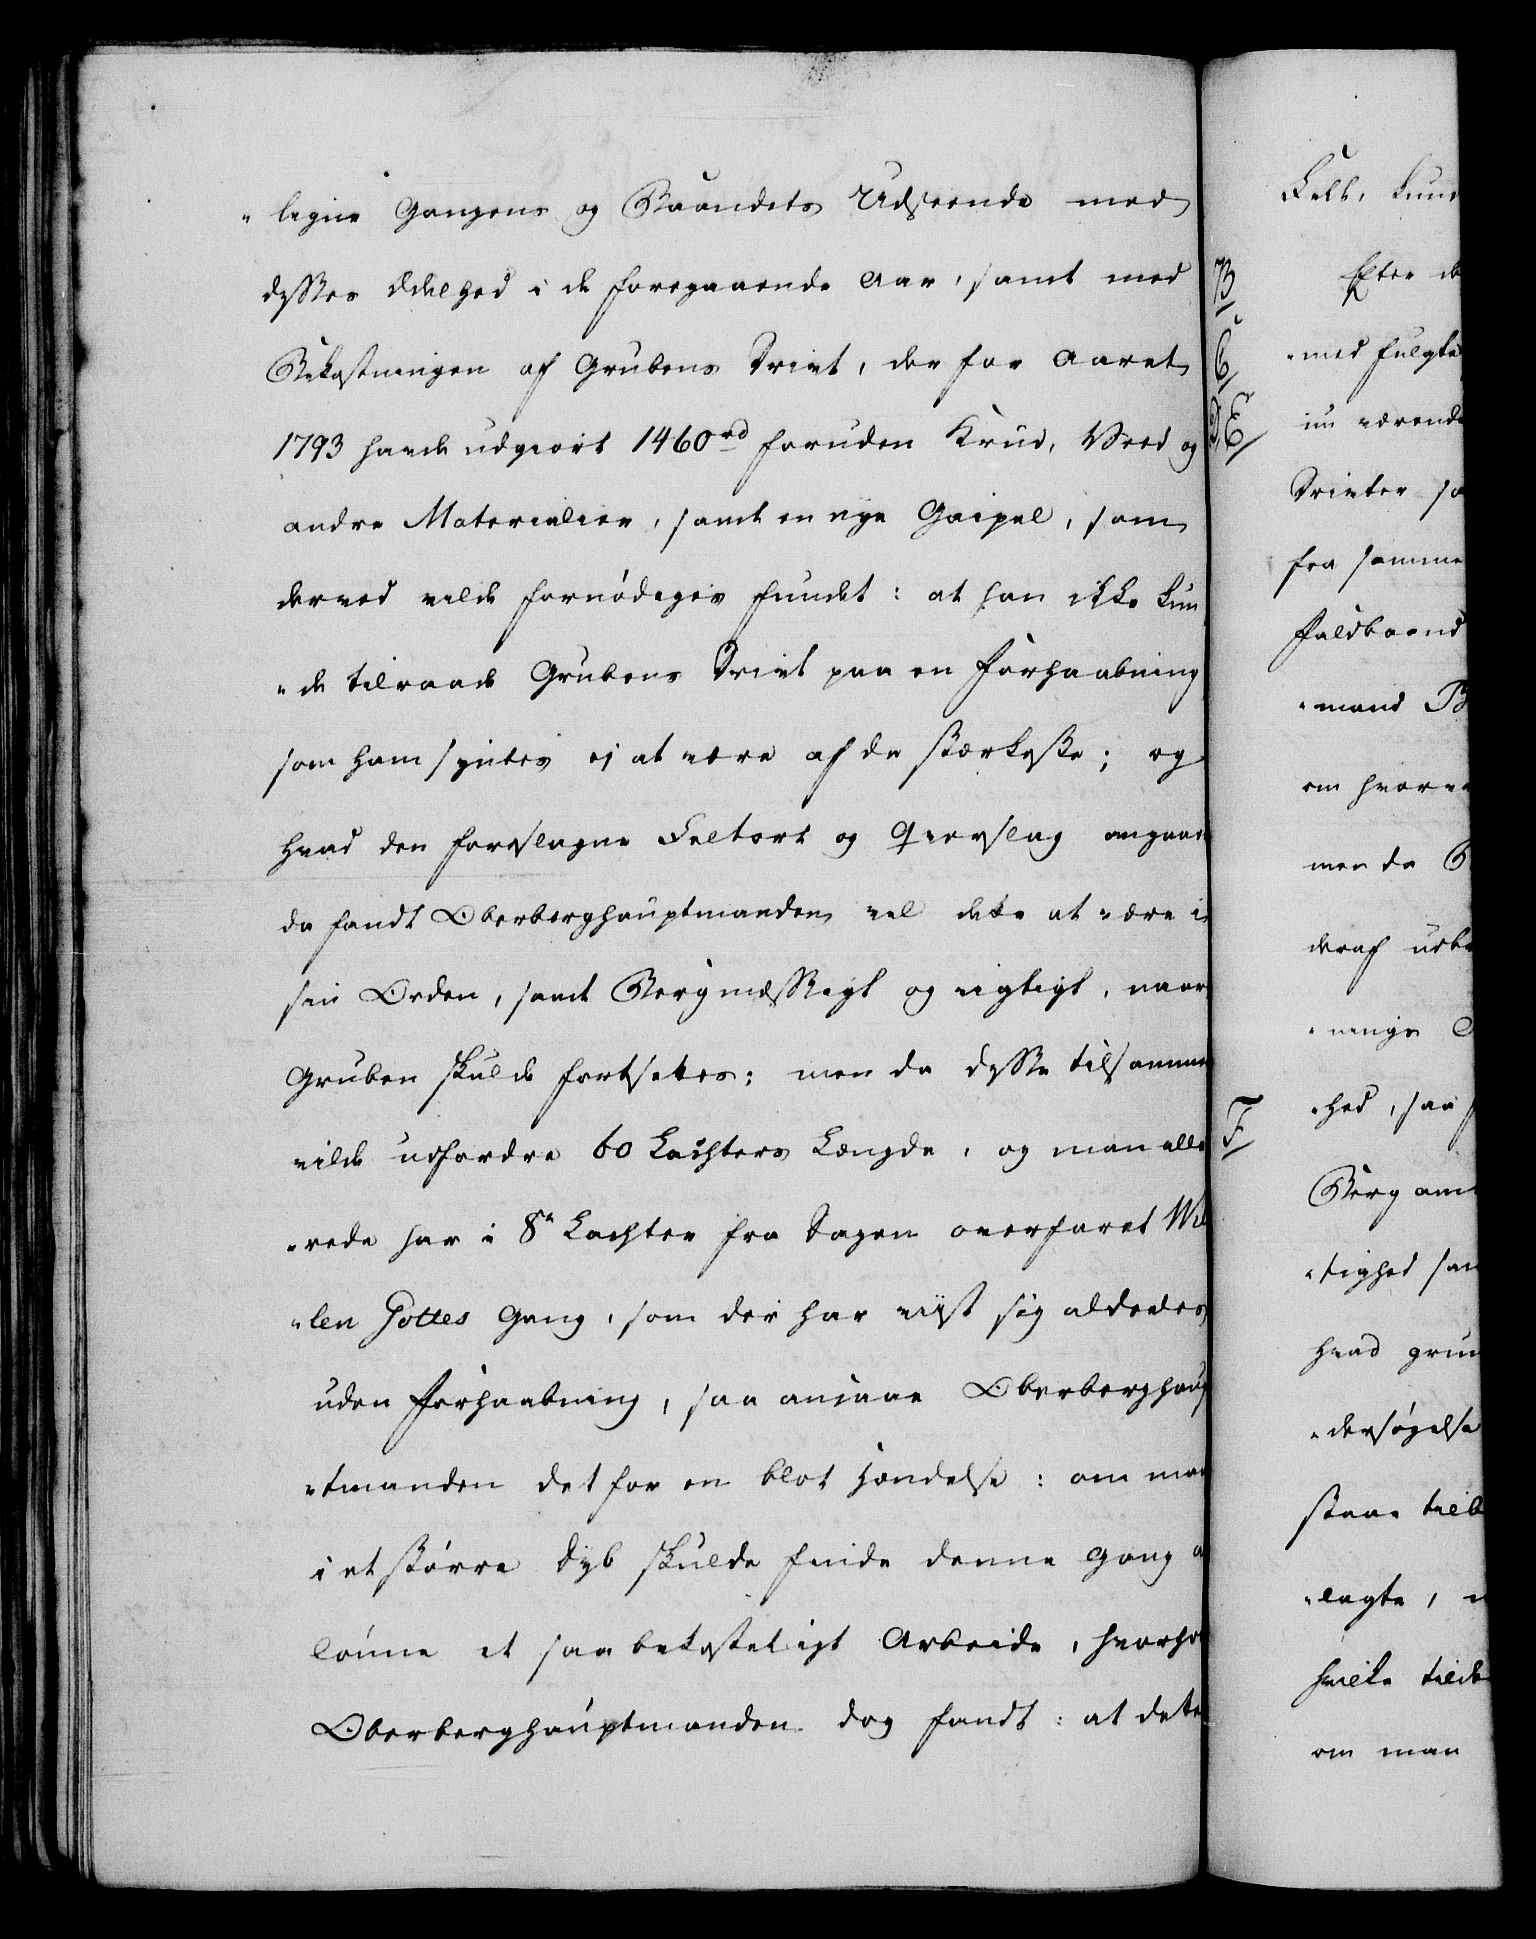 „ligne Gangens og Baandets Udseende med
dysses Ædelhed i de foregaaende Aar, samt med
Bekostningen af Grubens Drivt, der for Aaret
1793 havde udgiort 1460rd foruden Krud, Veed og
andre Materialier, samt en nye Gaipel, som
derved vilde fornødiges fundet: at han ikke kun
„de tilraade Grubens Drivt paa en Forhaabning
som ham syntes ej at være af de stærkeste; og
hvad den foreslagne Feltort og Qverslag angaar
da fandt Oberberghauptmanden vel dette at være i
sin Orden, samt Bergmæssigt og rigtigt, naar
Gruben skulde fortsættes; men da disse tilsammen
vilde udfordre 60 Lachters Længde, og man alle
„rede har i 8e Lachter fra Dagen overfaret Wil
„len Gottes Gang, som der har viist sig aldeles
uden Forhaabning, saa ansaae Oberberghaup
„tmanden det for en blot Hændelse: om man
i et større Dyb skulde finde denne Gang a
lønne et saa bekosteligt Arbeide, hvorho
Oberberghauptmanden dog fandt: at dette
B
C
D E
F
Feldt, kun
Efter de
„med fulgte
nu værende
Drivter sa
fra samme
Faldbaand
„mand B
om hvorve
men da
deraf udbr
„nings
„hed, saa
Berg am
„tighed sam
hvad grun
„dersøgelse
staae tilb
„lagte,
hvilke tilde
om man